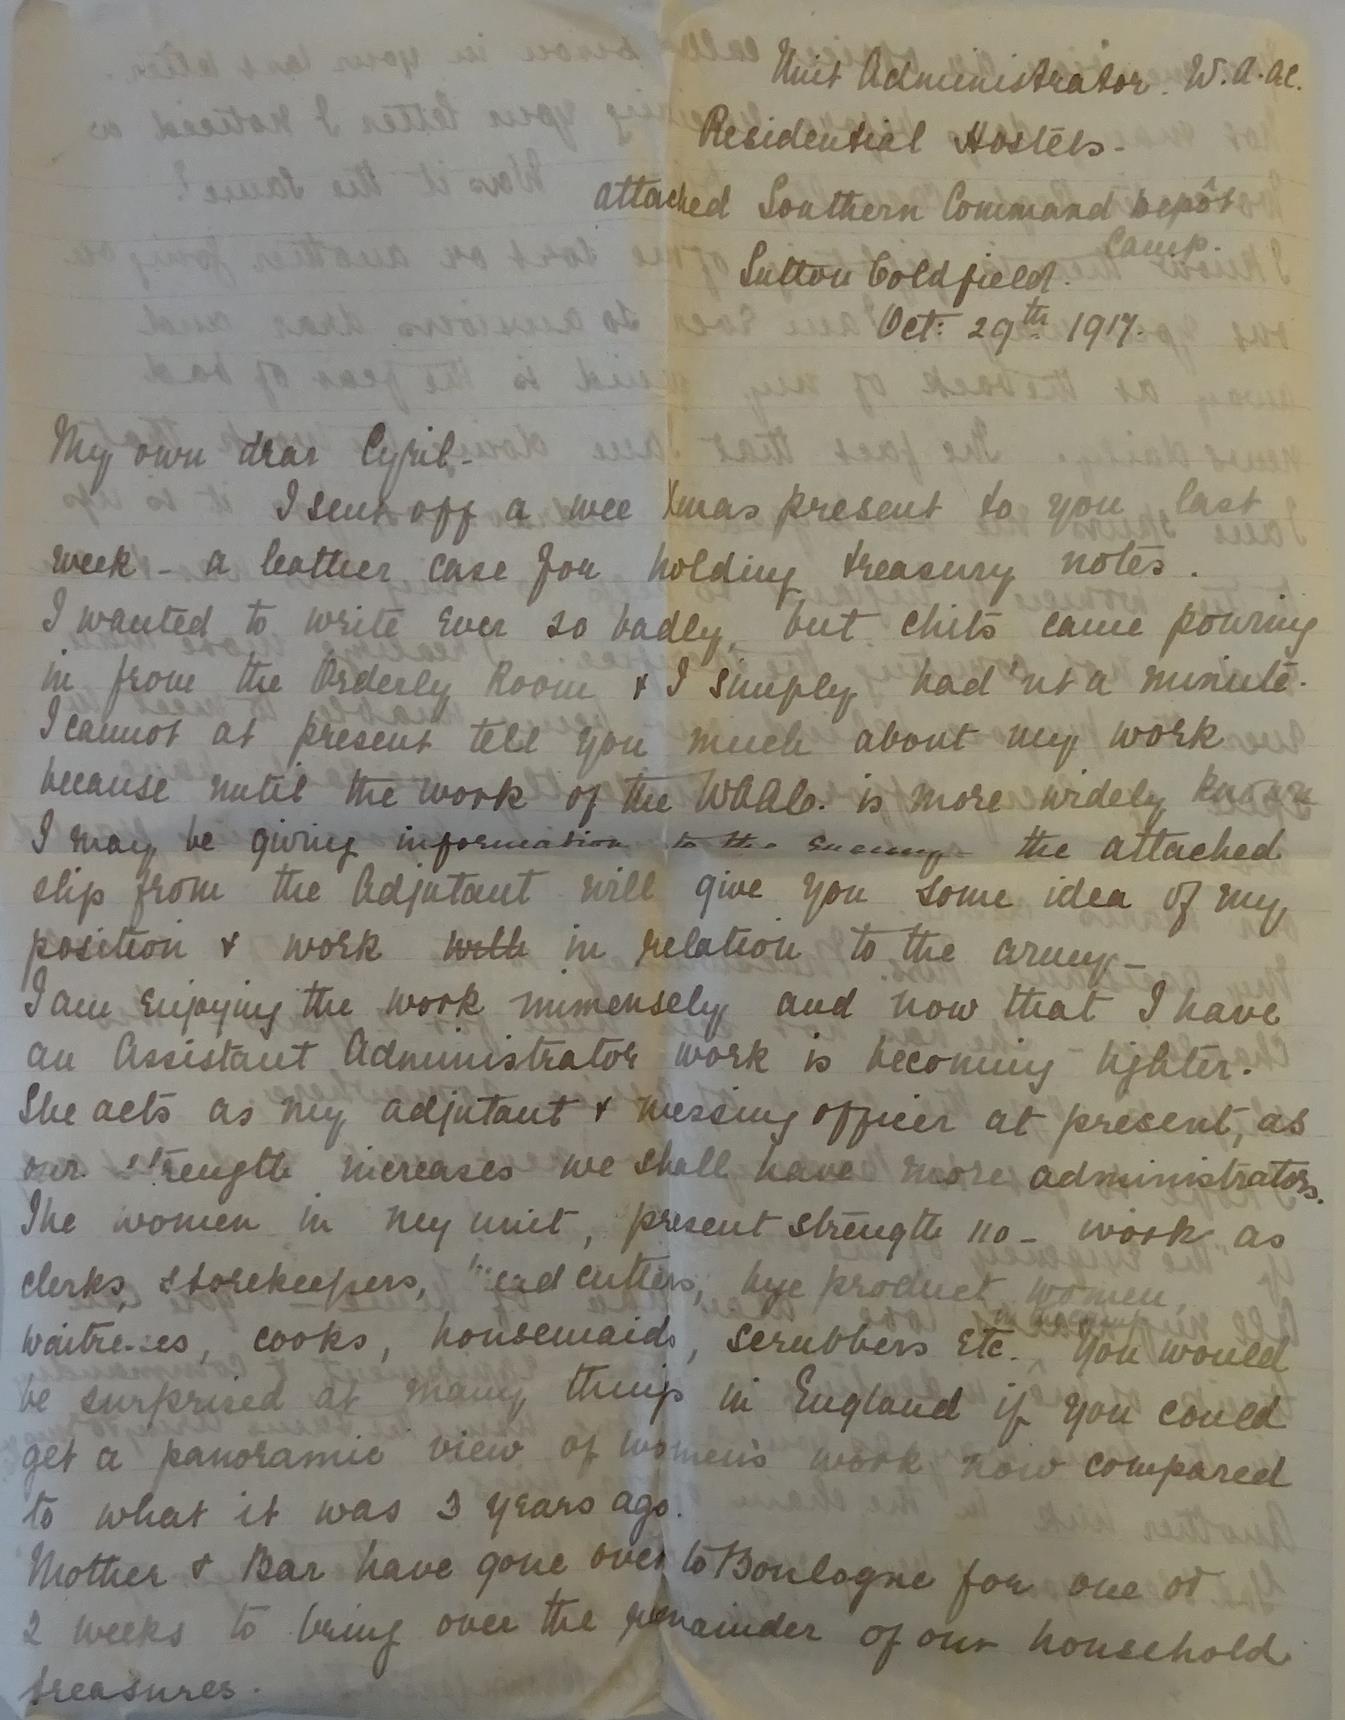 Unit Administrator. W.A.A.C.
Residential Hostels -
attached Southern Command Depôt
Camp.
Sutton Coldfield.
Oct: 29th 1917.
My own dear Cyril -
I sent off a wee Xmas present to you last
week - a leather case for holding treasury notes.
I wanted to write ever so badly, but chits came pouring
in from the Orderly Room & I simply had'nt a minute.
I cannot at present tell you much about my work
because until the work of the WAAC. is more widely known
I may be giving information to the enemy - the attached
slip from the Adjutant will give you some idea of my
position & work with in relation to the army -
I am enjoying the work immensely and now that I have
an Assistant Administrator work is becoming lighter.
She acts as my adjutant & messing officer at present, as
our strength increases we shall have more administrators.
The women in my unit, present strength 110 - work as
clerks, storekeepers, bread cutters, bye product women,
waitresses, cooks, housemaids, scrubbers etc. You would
be surprised at many things in England if you could
get a panoramic view of women's work now compared
to what it was 3 years ago.
Mother & Bar have gone over to Boulogne for one or
2 weeks to bring over the remainder of our household
treasures.